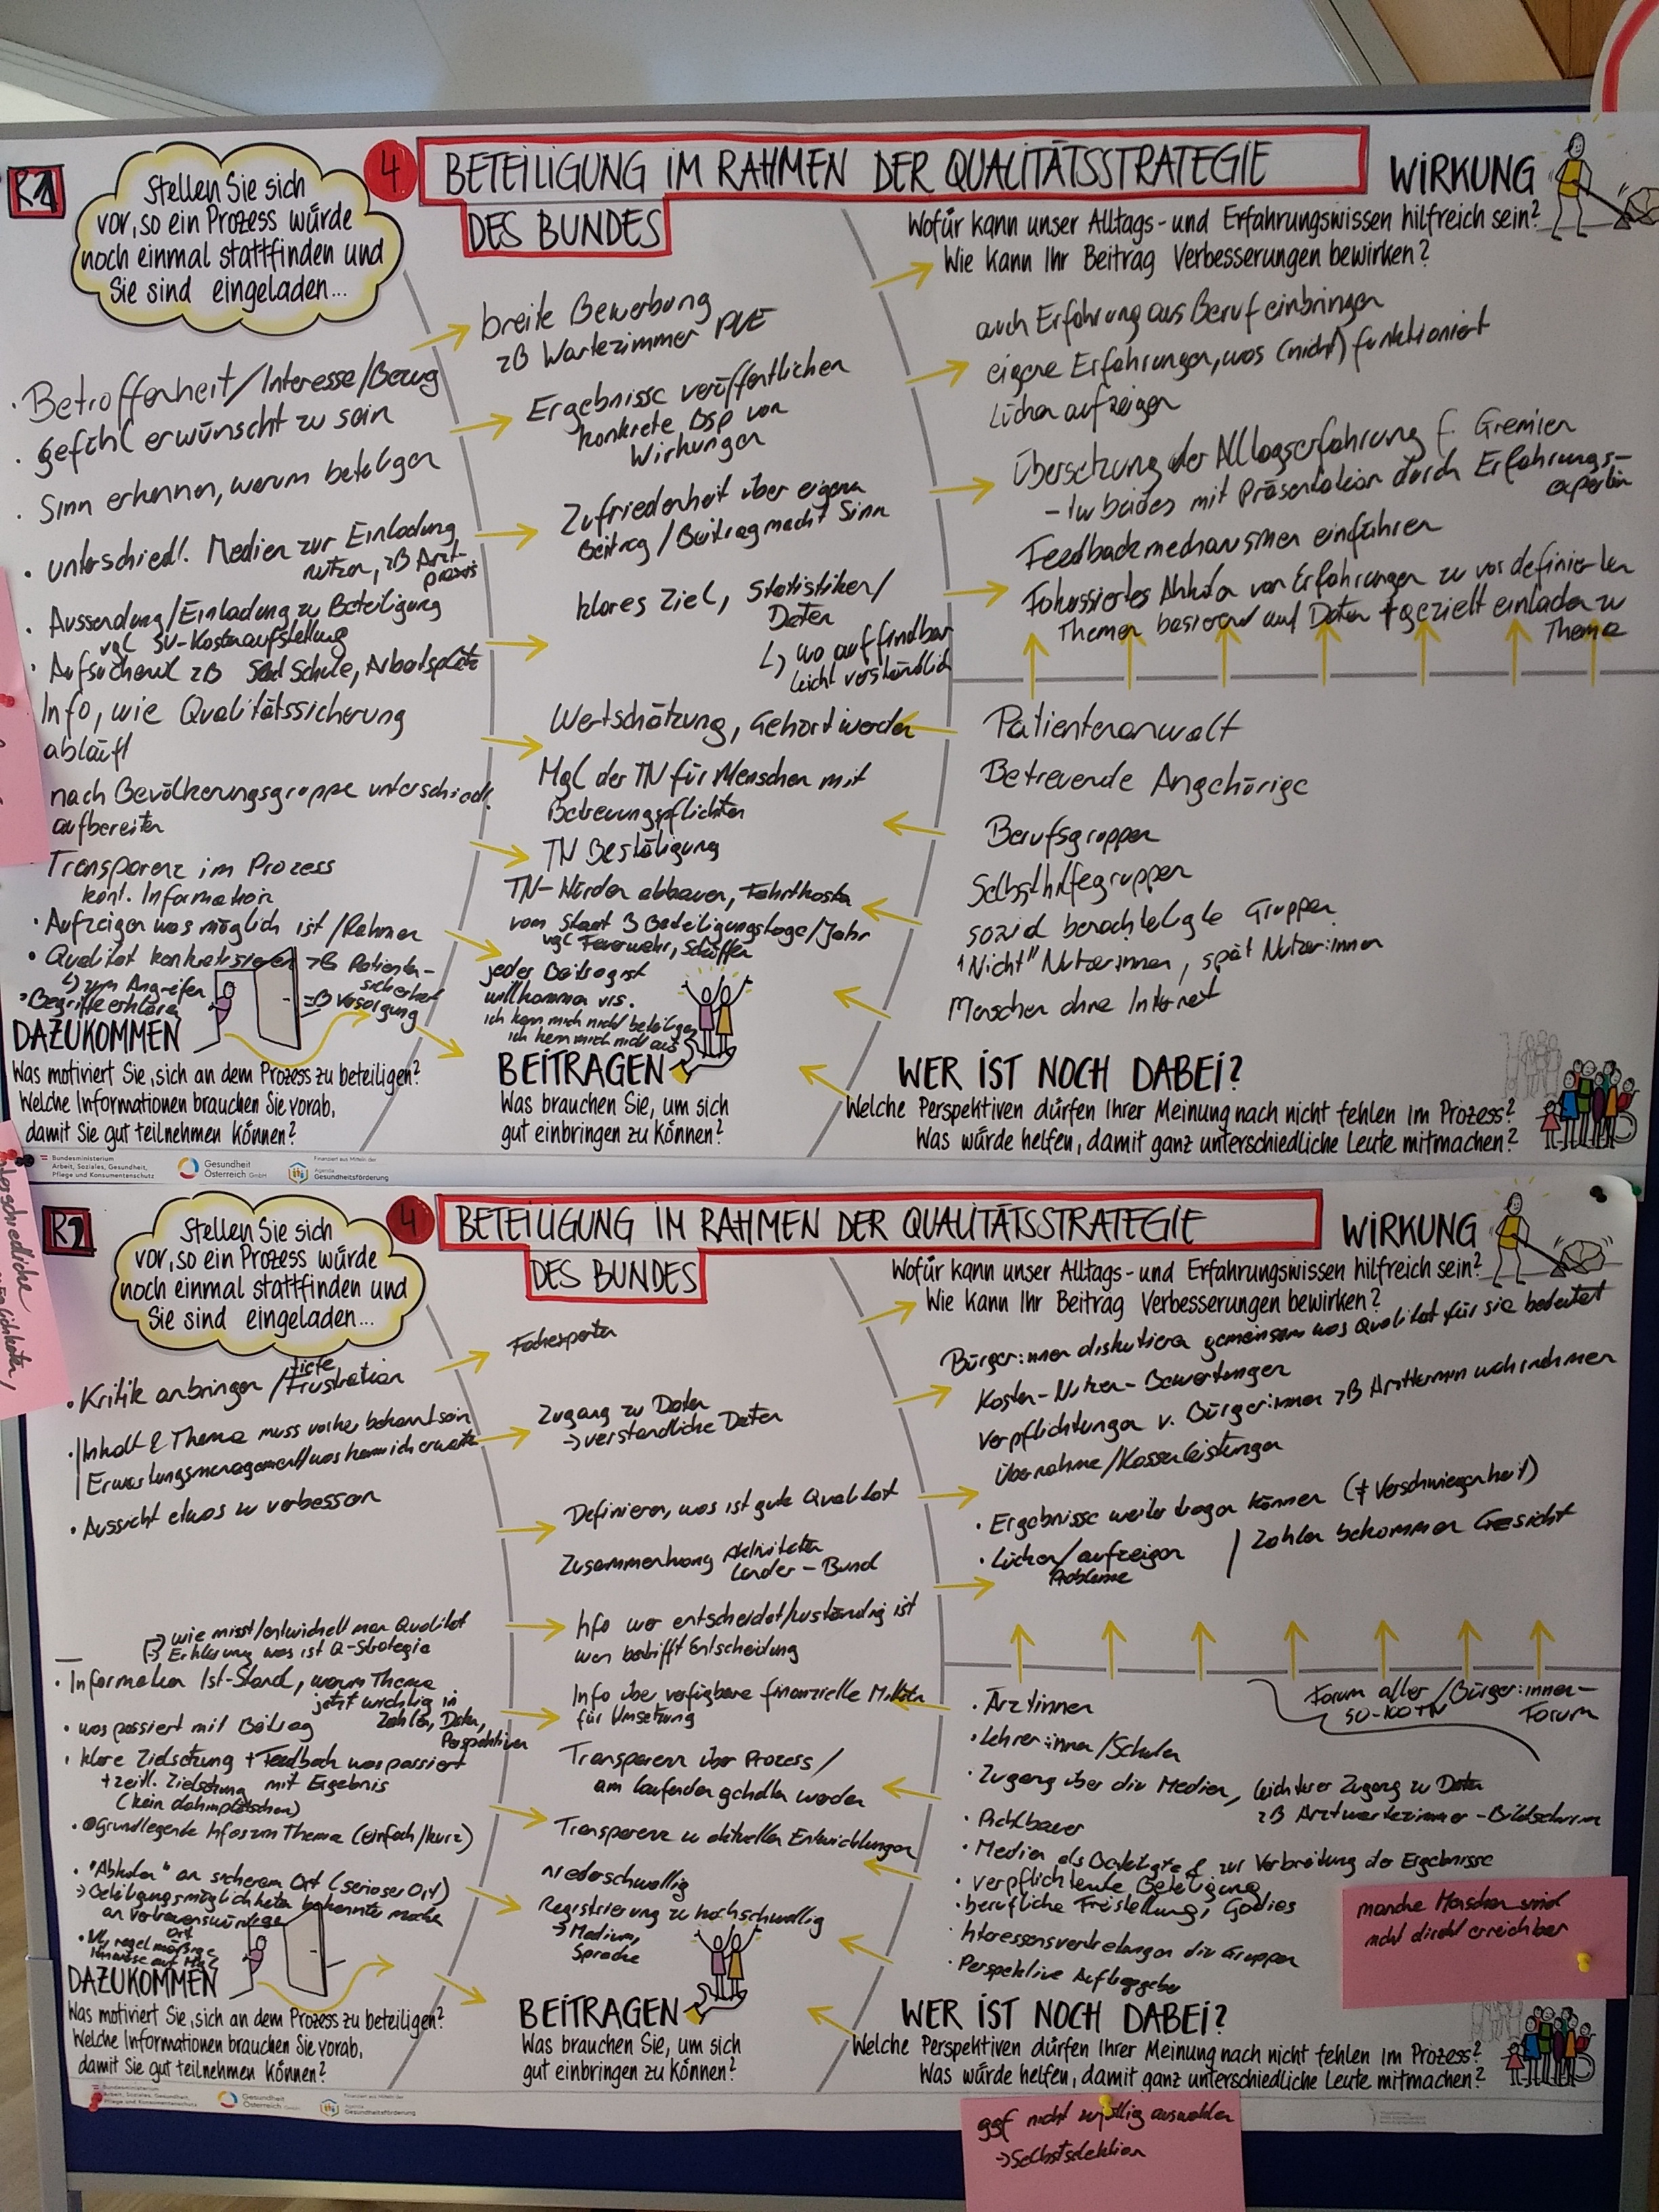 R1
Stellen Sie sich
vor, so ein Prozess würde
noch einmal stattfinden und
Sie sind eingeladen...
4
BETEILIGUNG IM RAHMEN DER QUALITÄTSSTRATEGIE
DES BUNDES
WIRKUNG
Wofür kann unser Alltags- und Erfahrungswissen hilfreich sein?
Wie kann Ihr Beitrag Verbesserungen bewirken?
· Betroffenheit/Interesse/Bezug
· Gefühl erwünscht zu sein
· Sinn erkennen, warum beteiligen
· unterschiedl. Medien zur Einladung
nutzen, zB Arzt-
praxis
· Aussendung/Einladung zu Beteiligung
vgl SV-Kostenaufstellung
· Aufsuchend zB Schule, Arbeitsplatz
Info, wie Qualitätssicherung
abläuft
nach Bevölkerungsgruppe unterschiedl.
aufbereiten
Transparenz im Prozess
kont. Information
· Aufzeigen was möglich ist/Rahmen
· Qualität konkretisieren zB Patienten-
sicherheit
↳ zum Angreifen
zB Versorgung
Begriffe erklären
DAZUKOMMEN
Was motiviert Sie, sich an dem Prozess zu beteiligen?
Welche Informationen brauchen Sie vorab,
damit Sie gut teilnehmen können?
breite Bewerbung
zB Wartezimmer PVE
Ergebnisse veröffentlichen
konkrete Bsp von
Wirkungen
Zufriedenheit über eigenen
Beitrag/Beitrag macht Sinn
klares Ziel, Statistiken/
Daten
↳ wo auffindbar
leicht verständlich
Wertschätzung, Gehört werden
Mgl der TN für Menschen mit
Betreuungspflichten
TN Bestätigung
TN-Hürden abbauen, Fahrtkosten
vom Staat 3 Beteiligungstage/Jahr
vgl Feuerwehr, Schöffen
jeder Beitrag ist
willkommen vs.
ich kann mich nicht beteiligen
ich kenn mich nicht aus
BEITRAGEN
Was brauchen Sie, um sich
gut einbringen zu können?
auch Erfahrung aus Beruf einbringen
eigene Erfahrungen, was (nicht) funktioniert
Lücken aufzeigen
Übersetzung der Alltagserfahrung f. Gremien
beides mit Präsentation durch Erfahrungs-
expertin
Feedbackmechanismen einführen
Fokussiertes Abholen von Erfahrungen zu vordefinierten
Themen basierend auf Daten + gezielt einladen zu
Thema
Patientenanwalt
Betreuende Angehörige
Berufsgruppen
Selbsthilfegruppen
sozial benachteiligte Gruppen
"Nicht" Nutzer:innen, spät Nutzer:innen
Menschen ohne Internet
WER IST NOCH DABEI?
Welche Perspektiven dürfen Ihrer Meinung nach nicht fehlen im Prozess?
Was würde helfen, damit ganz unterschiedliche Leute mitmachen?
Bundesministerium
Arbeit, Soziales, Gesundheit,
Pflege und Konsumentenschutz
Gesundheit
Österreich GmbH
Finanziert aus Mitteln der
Agenda
Gesundheitsförderung
R2
Stellen Sie sich
vor, so ein Prozess würde
noch einmal stattfinden und
Sie sind eingeladen...
4
BETEILIGUNG IM RAHMEN DER QUALITÄTSSTRATEGIE
DES BUNDES
WIRKUNG
Wofür kann unser Alltags- und Erfahrungswissen hilfreich sein?
Wie kann Ihr Beitrag Verbesserungen bewirken?
· Kritik anbringen/tiefe Frustration
· Inhalt & Thema muss vorher bekannt sein
Erwartungsmanagement/was kann ich erwarten
· Aussicht etwas zu verbessern
wie misst/entwickelt man Qualität
Erklärung was ist Q-Strategie
· Information Ist-Stand, warum Thema
jetzt wichtig in
Zahlen, Daten,
Perspektiven
· was passiert mit Beitrag
· klare Zielsetzung + Feedback was passiert
+ zeitl. Zielsetzung mit Ergebnis
(kein dahinplätschern)
· Grundlegende Infos zum Thema (einfach/kurz)
· "Abholen" an sicherem Ort (seriöser Ort)
→ Beteiligungsmöglichkeiten bekannter machen
an vertrauenswürdige
Ort
DAZUKOMMEN
Was motiviert Sie, sich an dem Prozess zu beteiligen?
Welche Informationen brauchen Sie vorab,
damit Sie gut teilnehmen können?
Fachexperten
Zugang zu Daten
→ verständliche Daten
Definieren, was ist gute Qualität
Zusammenhang Aktivitäten
Länder-Bund
Info wer entscheidet/zuständig ist
wen betrifft Entscheidung
Info über verfügbare finanzielle Mittel
für Umsetzung
Transparenz über Prozess/
am laufenden gehalten werden
Transparenz zu aktuellen Entwicklungen
niederschwellig
Registrierung zu hochschwellig
→ Medium,
Sprache
BEITRAGEN
Was brauchen Sie, um sich
gut einbringen zu können?
Bürger:innen diskutieren gemeinsam was Qualität für sie bedeutet
Kosten-Nutzen-Bewertungen
Verpflichtungen v. Bürger:innen zB Arzttermin wahrnehmen
Übernahme/Kassenleistungen
· Ergebnisse weiter tragen können (≠ Verschwiegenheit)
· Lücken/aufzeigen
Probleme
Zahlen bekommen Gesicht
· Ärzt:innen
· Lehrer:innen/Schulen
· Zugang über die Medien, leichterer Zugang zu Daten
zB Arztwartezimmer-Bildschirm
Forum aller/Bürger:innen-
50-100 TN
Forum
· Medien als Beteiligte & zur Verbreitung der Ergebnisse
· verpflichtende Beteiligung
· berufliche Freistellung, Goodies
· Interessensvertretungen div Gruppen
· Perspektive Auftraggeber
manche Menschen sind
nicht direkt erreichbar
WER IST NOCH DABEI?
Welche Perspektiven dürfen Ihrer Meinung nach nicht fehlen im Prozess?
Was würde helfen, damit ganz unterschiedliche Leute mitmachen?
Bundesministerium
Arbeit, Soziales, Gesundheit,
Pflege und Konsumentenschutz
Gesundheit
Österreich GmbH
Finanziert aus Mitteln der
Agenda
Gesundheitsförderung
ggf nicht zufällig auswählen
→ Selbstselektion